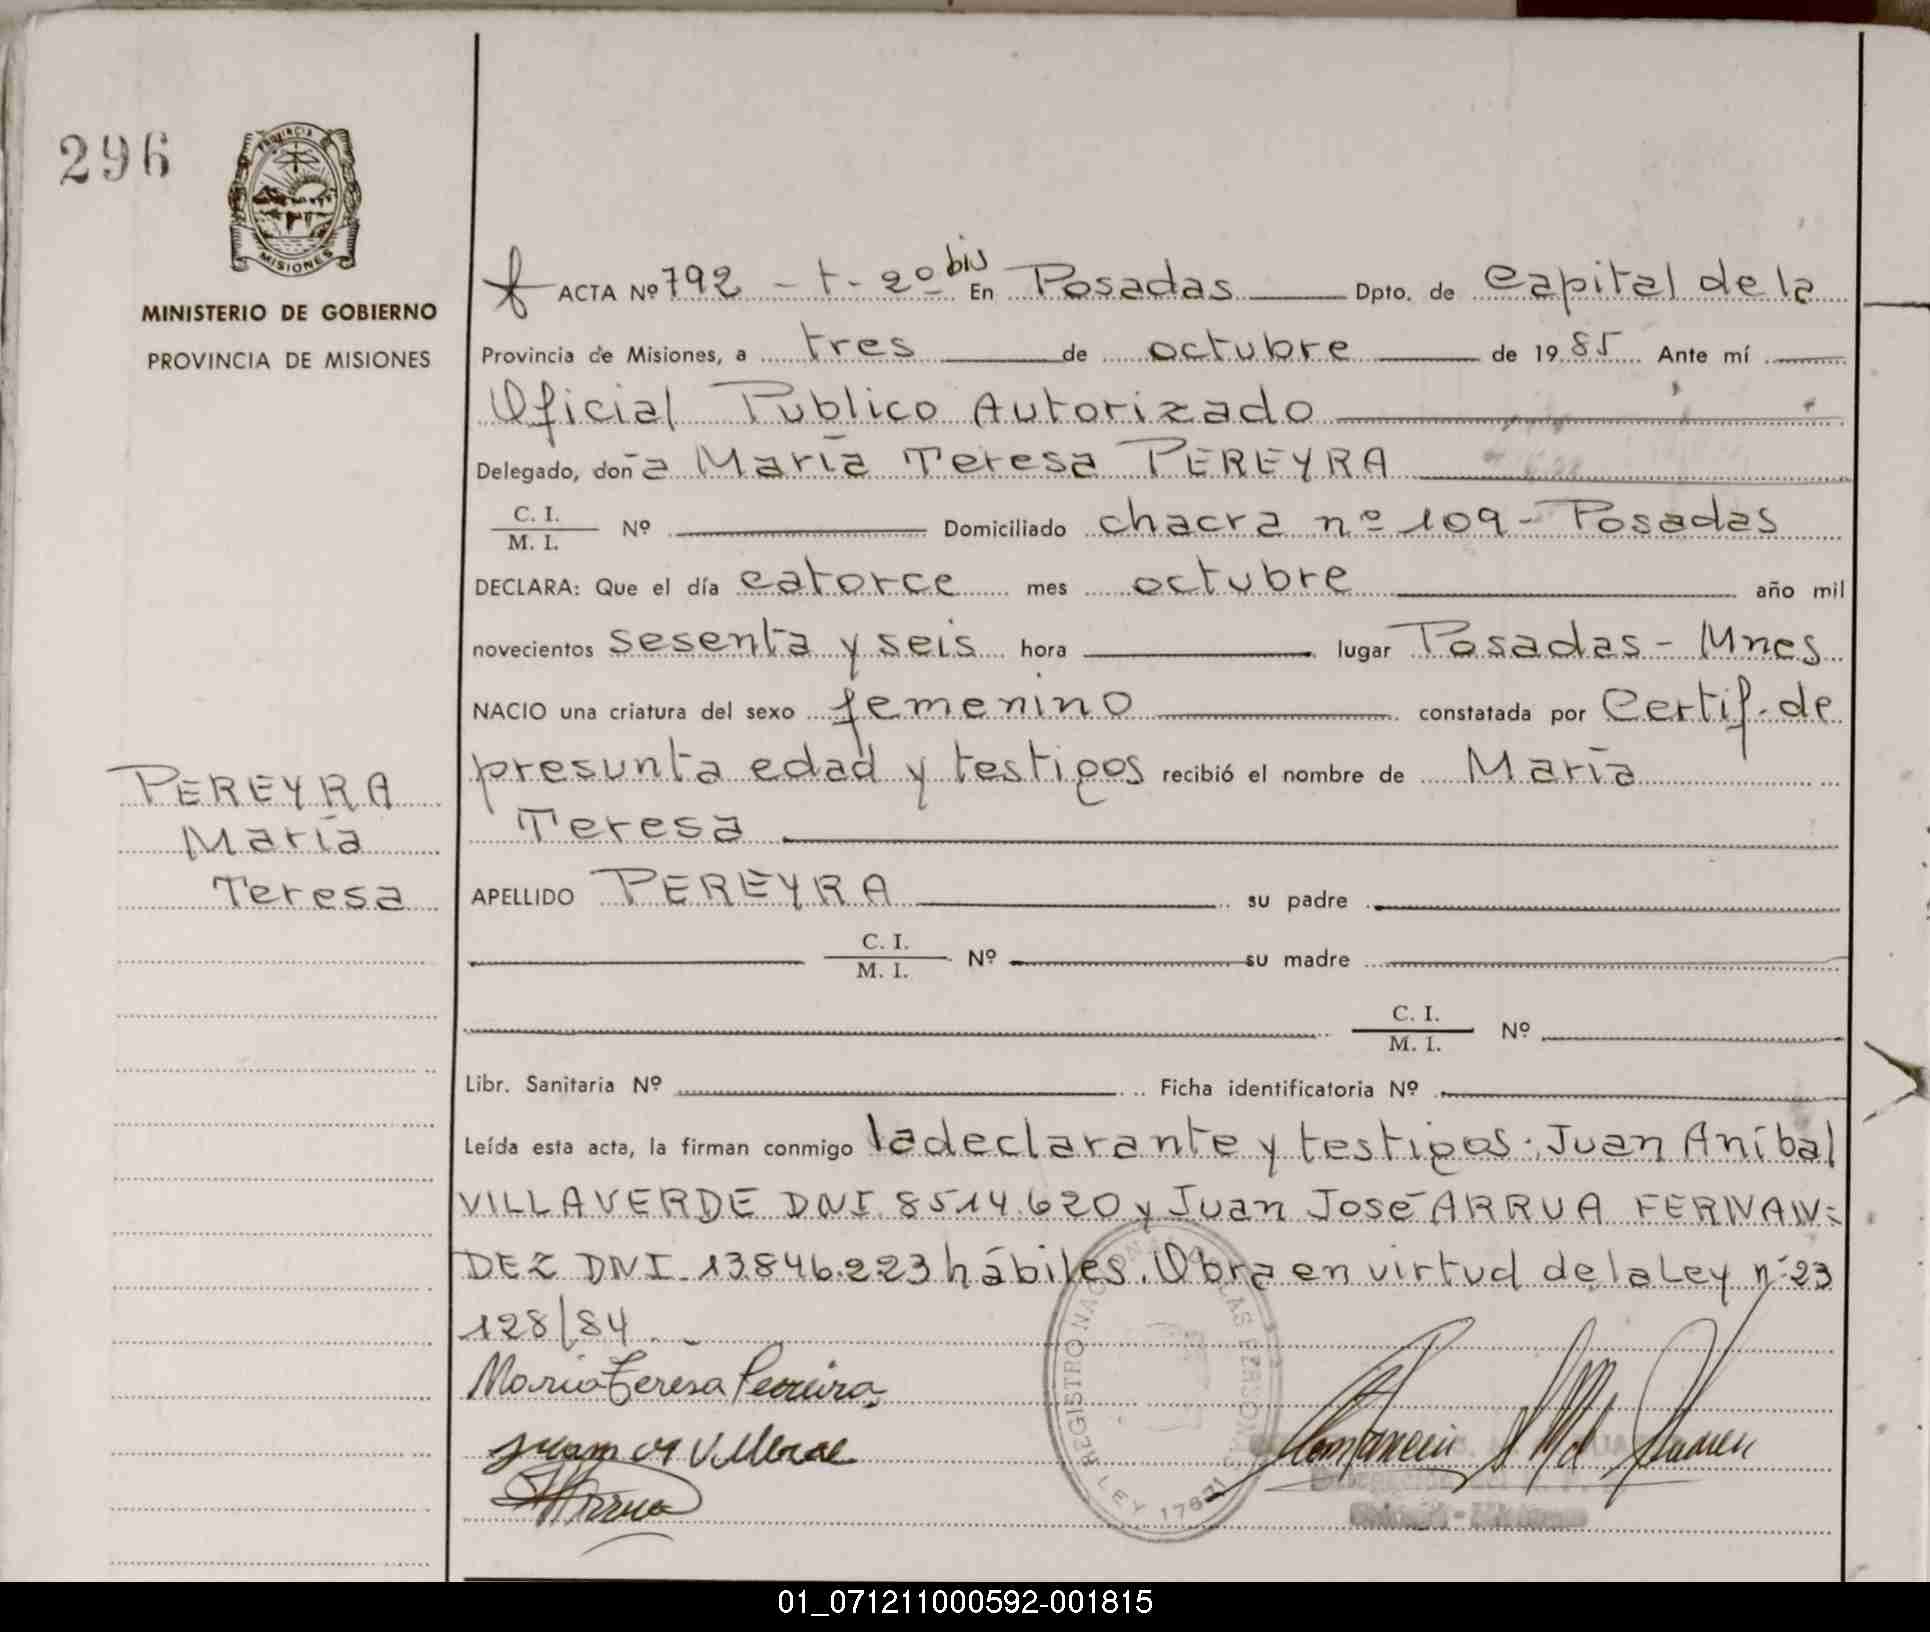 296
PROVINCIA
MISIONES
MINISTERIO DE GOBIERNO
PROVINCIA DE MISIONES
ACTA Nº 792 - t - 2º bis En Posadas Dpto. de Capital de la
Provincia de Misiones, a tres de octubre de 1985 Ante mí
Oficial Publico Autorizado
Delegado, doña María Teresa PEREYRA
C. I.
M. I. Nº Domiciliado chacra nº 109 - Posadas
DECLARA: Que el día catorce mes octubre año mil
novecientos sesenta y seis hora lugar Posadas - Mnes
NACIO una criatura del sexo femenino constatada por Certif. de
presunta edad y testigos recibió el nombre de María
Teresa
PEREYRA
María
Teresa
APELLIDO PEREYRA su padre
C. I.
M. I. Nº su madre
C. I.
M. I. Nº
Libr. Sanitaria Nº Ficha identificatoria Nº
Leída esta acta, la firman conmigo la declarante y testigos: Juan Aníbal
VILLAVERDE DNI. 8514.620 y Juan José ARRUA FERNAN=
DEZ DNI. 13.846.223 hábiles. Obra en virtud de la Ley nº 23
128/84.
María Teresa Pereira
Arrua
REGISTRO NACIONAL DE LAS PERSONAS
LEY 17671
01_071211000592-001815